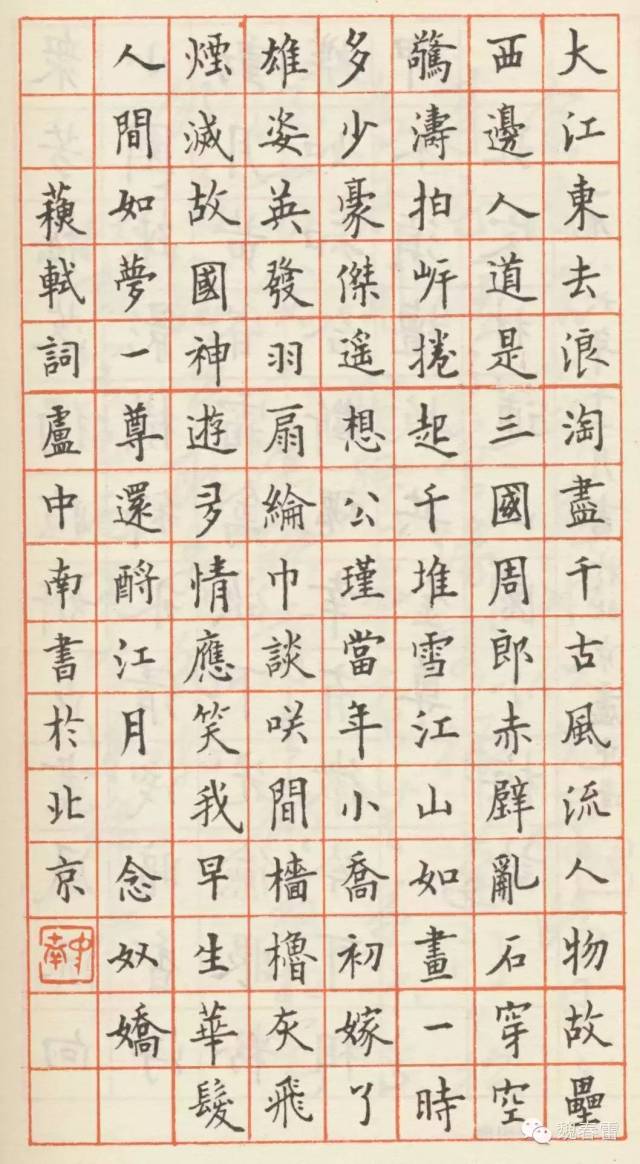 大江東去浪淘盡千古風流人物故壘
西邊人道是三國周郎赤壁亂石穿空
驚濤拍岸捲起千堆雪江山如畫一時
多少豪傑遥想公瑾當年小喬初嫁了
雄姿英發羽扇綸巾談咲間檣櫓灰飛
煙滅故國神遊多情應笑我早生華髮
人間如夢一尊還酹江月 念奴嬌
蘇軾詞盧中南書於北京
中南
魏春雷